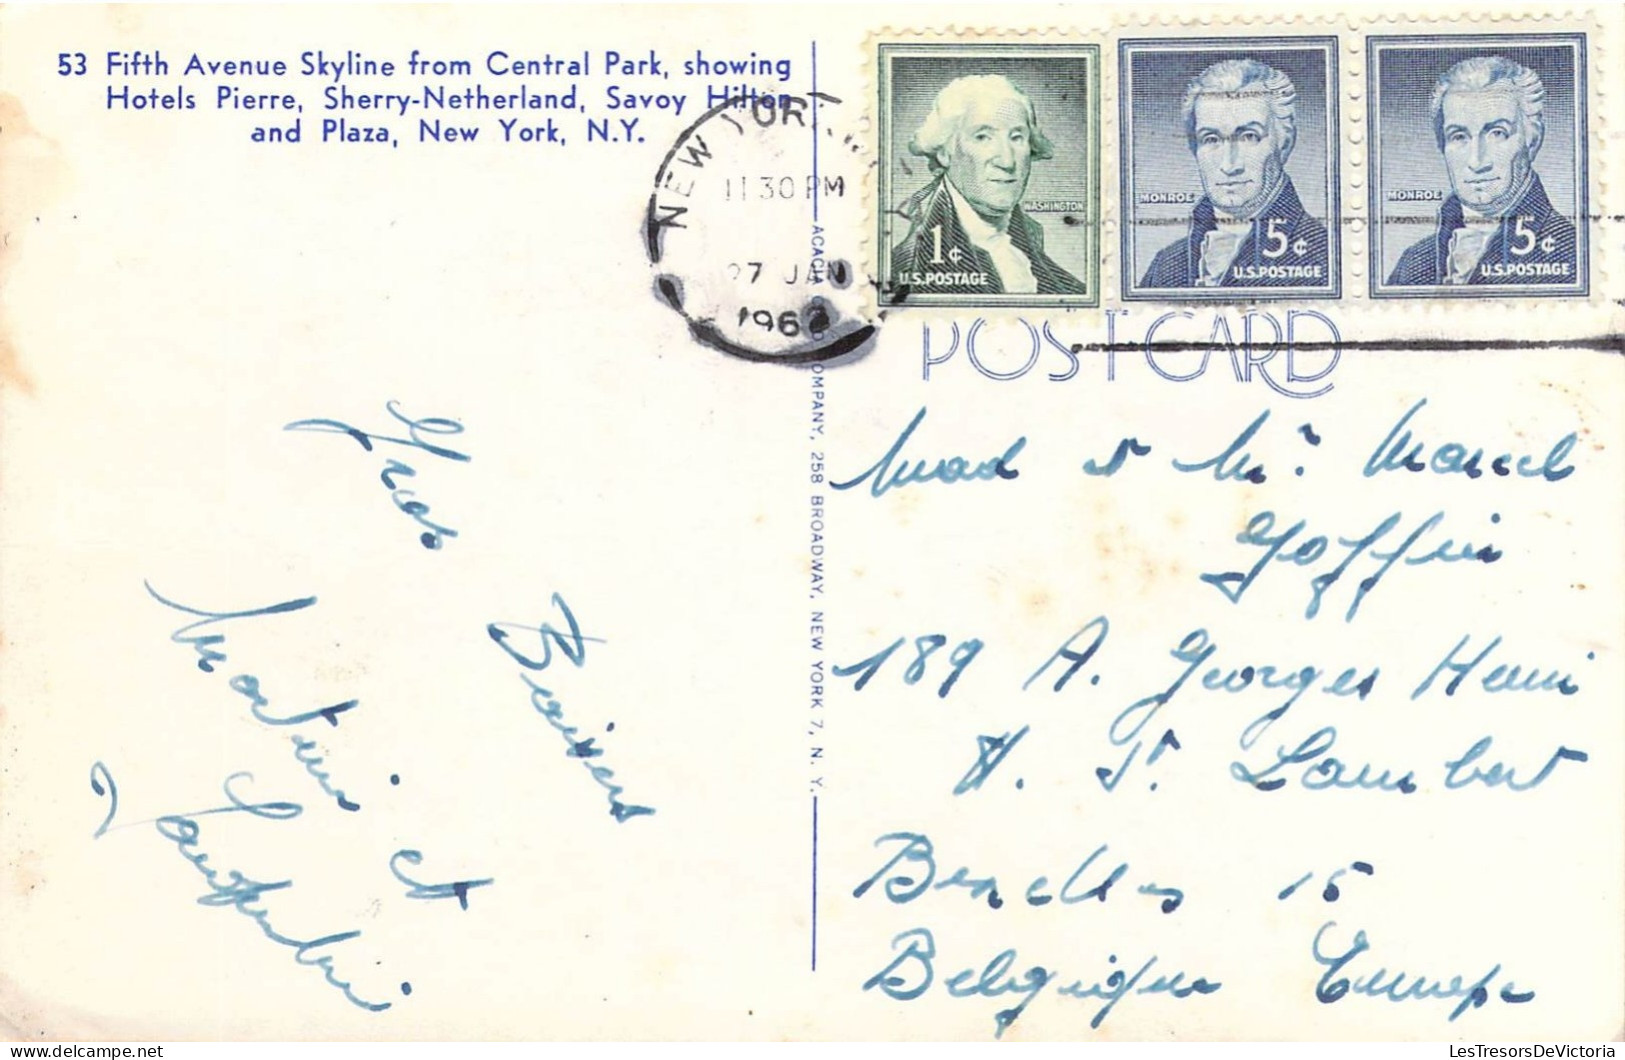 53 Fifth Avenue Skyline from Central Park, showing
Hotels Pierre, Sherry-Netherland, Savoy Hilton
and Plaza, New York, N.Y.
NEW YORK
11 30 PM
27 JAN
196
WASHINGTON
1¢
U.S. POSTAGE
MONROE
5¢
U.S. POSTAGE
MONROE
5¢
U.S. POSTAGE
POST CARD
ACACIA CARD COMPANY, 258 BROADWAY, NEW YORK 7, N. Y.
Gros
Baisers
Martine et
Mad et Mr. Marcel
Goffin
189 A. Georges Henri
W. St. Lambert
Bruxelles 15
Belgique Europe
LesTresorsDeVictoria